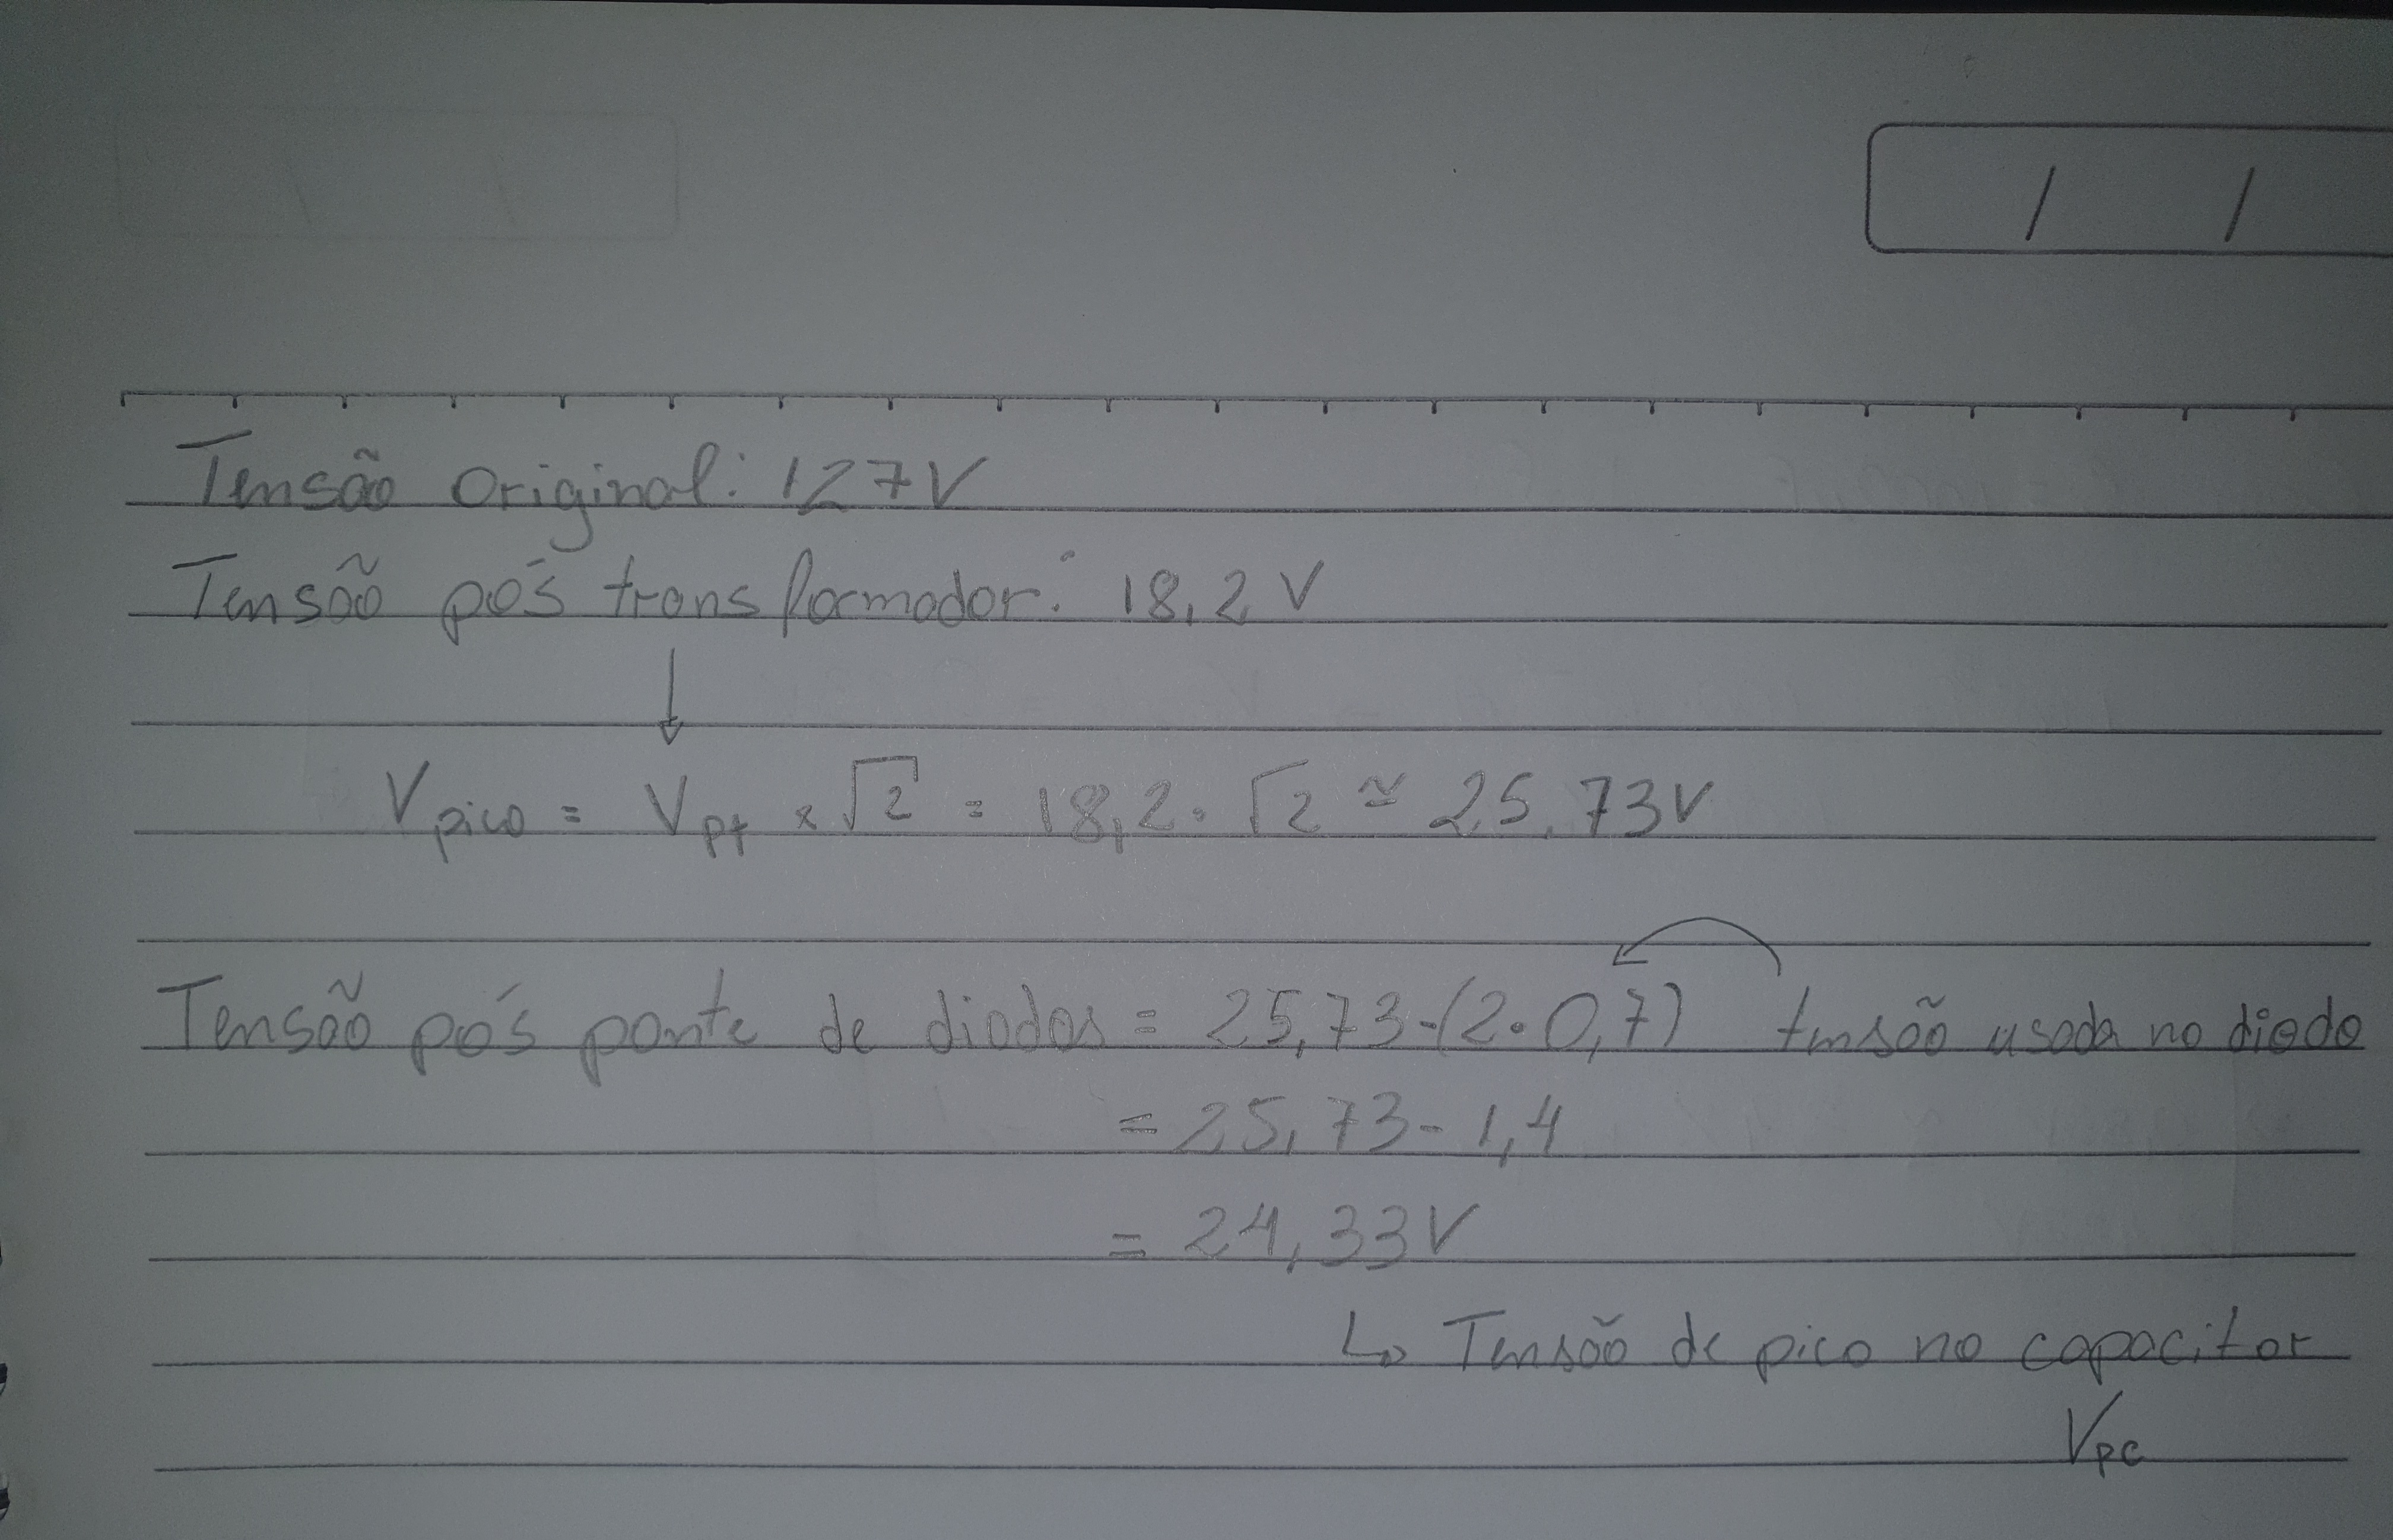 / /
Tensão Original: 127V
Tensão pós transformador: 18,2 V
↓
Vpico = Vpt × √2 = 18,2 · √2 ≃ 25,73V
Tensão pós ponte de diodos = 25,73-(2·0,7) tensão usada no diodo
= 25,73 - 1,4
= 24,33V
↳ Tensão de pico no capacitor
Vpc